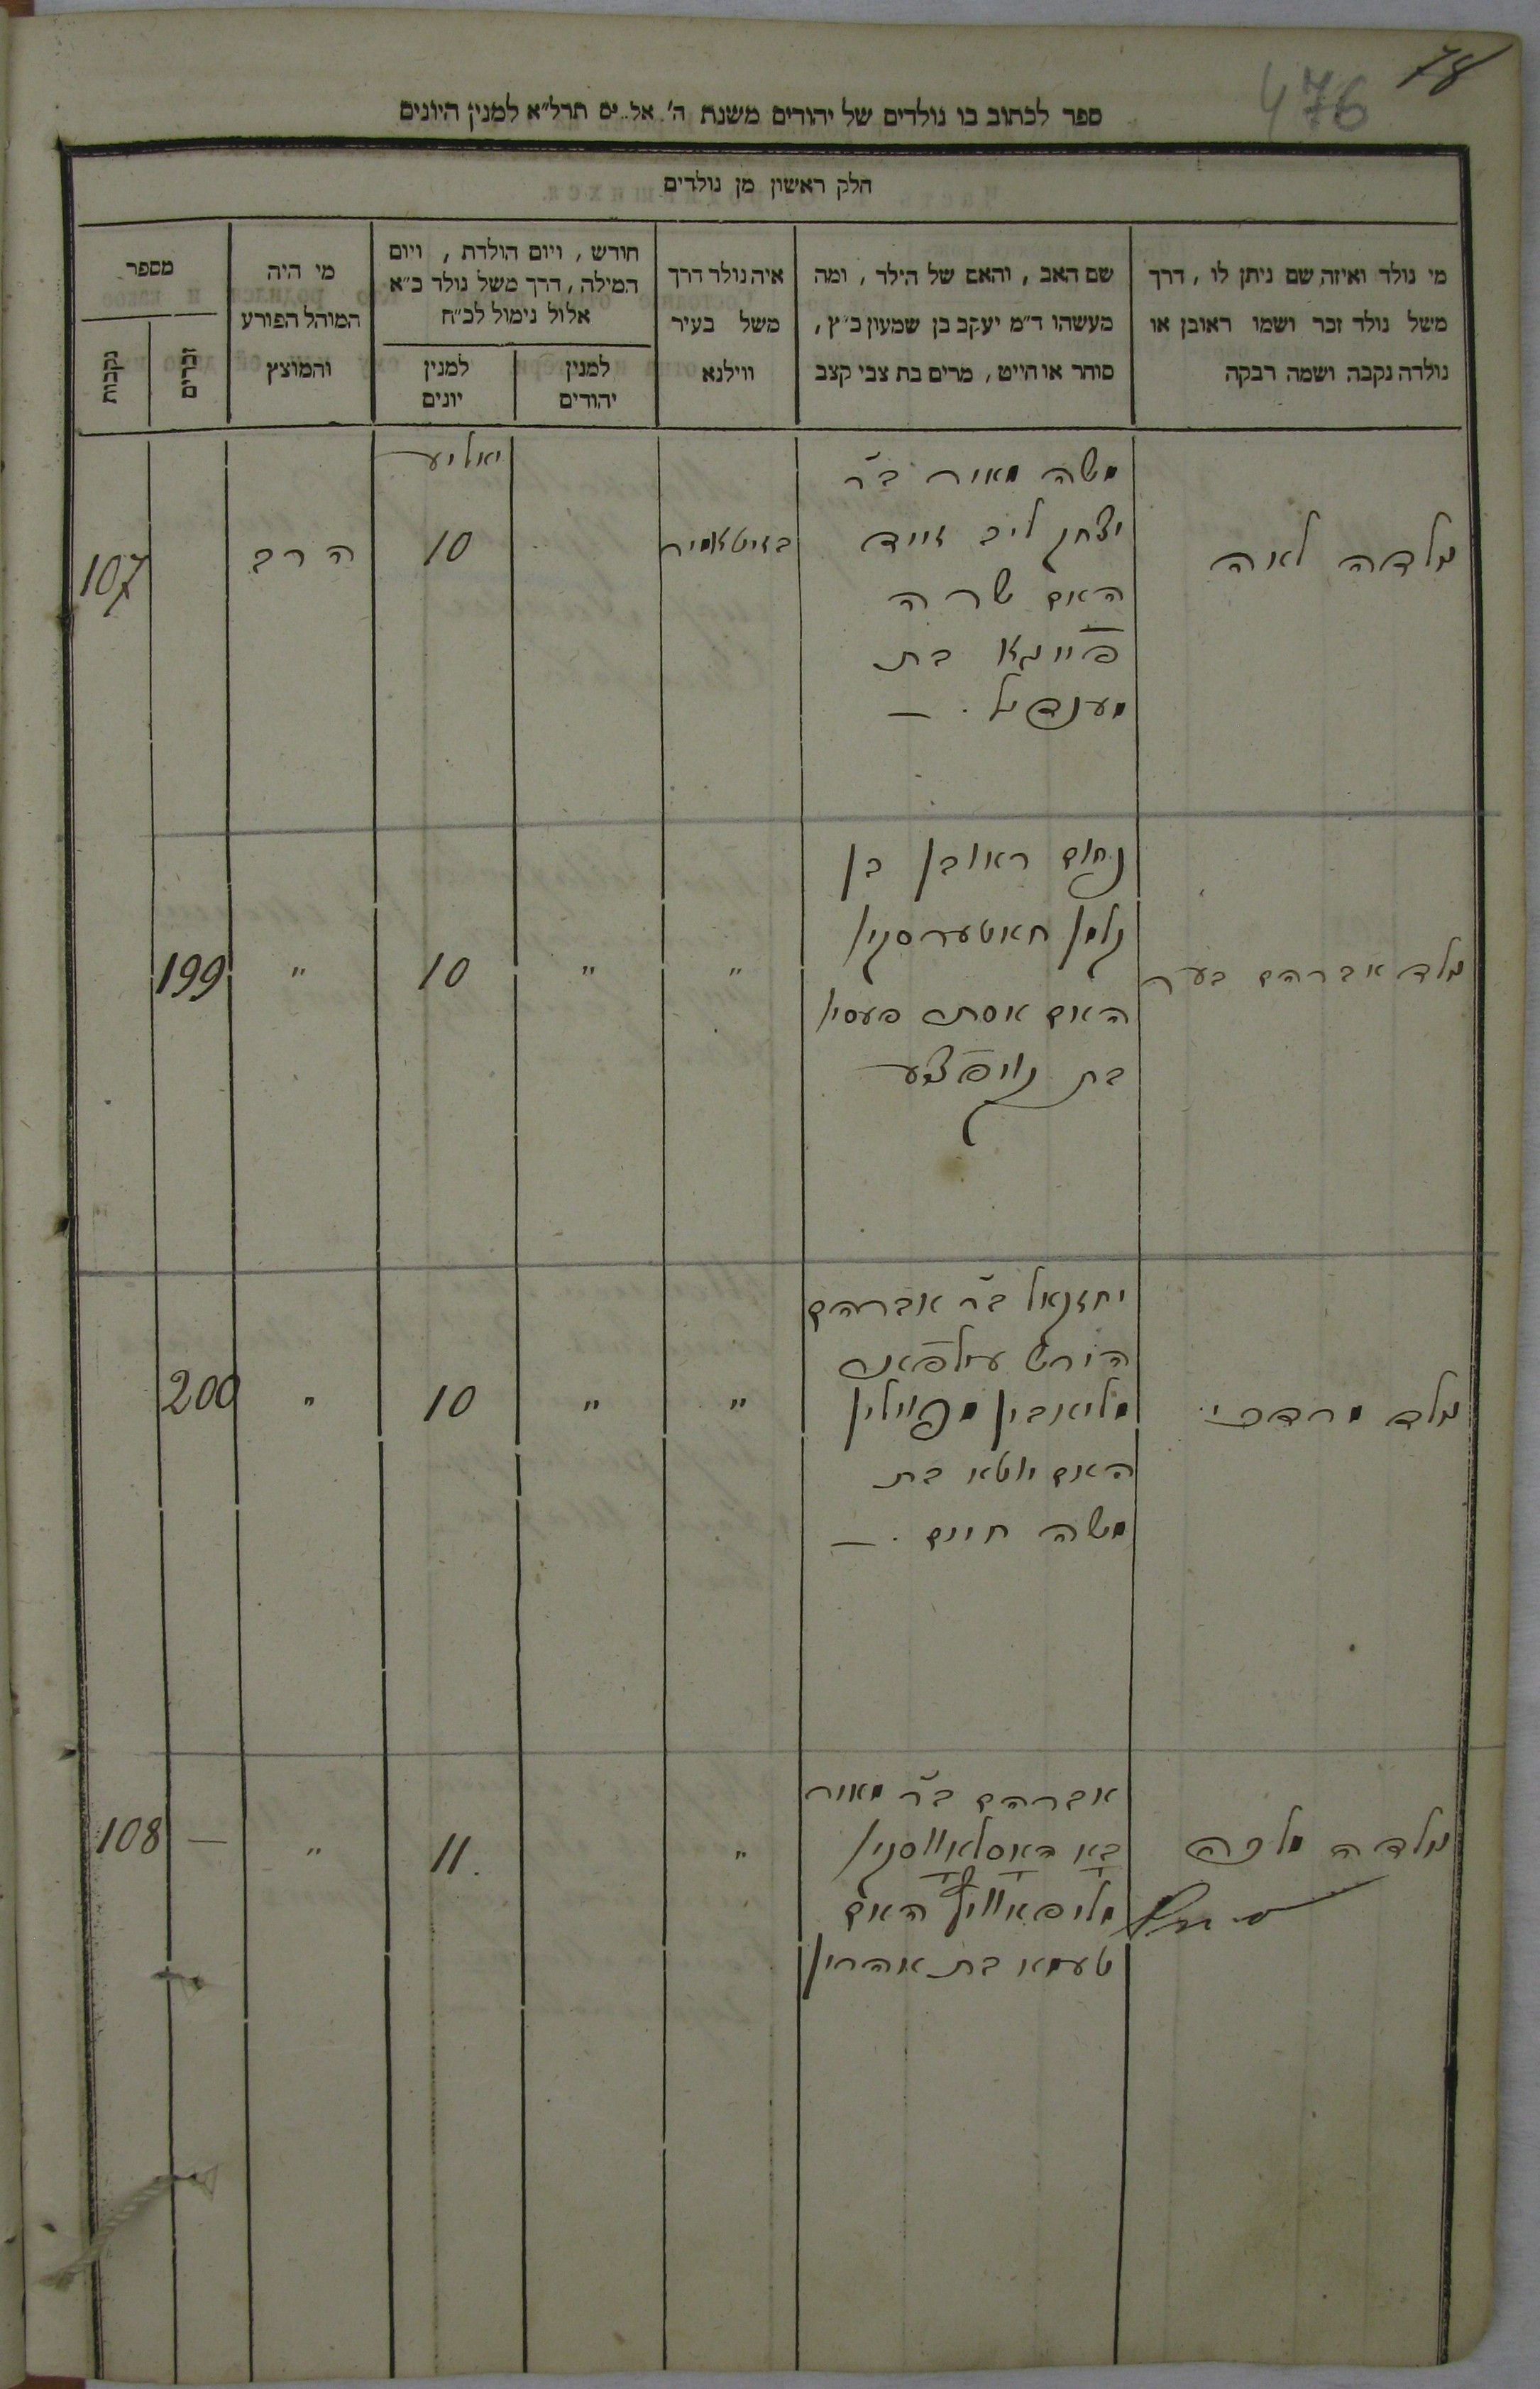 78
476
ספר לכתוב בו נולדים של יהודים משנת ה' אל..ים תרל"א למנין היונים
חלק ראשון מן נולדים
מי נולד ואיזה שם ניתן לו, דרך
משל נולד זכר ושמו ראובן או
נולדה נקבה ושמה רבקה
שם האב, והאם של הילד, ומה
מעשהו ד"מ יעקב בן שמעון כ"ץ,
סוחר או חייט, מרים בת צבי קצב
איה נולד דרך
משל בעיר
ווילנא
חודש, ויום הולדת, ויום
המילה, דרך משל נולד כ"א
אלול נימול לכ"ח
למנין
יהודים
למנין
יונים
מי היה
המוהל הפורע
והמוצץ
מספר
זכרים
נקבות
נולדה לאה
משה מאיר ב"ר
יצחק ליב זייד
האם שרה
פייגא בת
מענדיל. —
בזיטאמיר
יאליע
10
הרב
107
נולד אברהם בער
נחום ראובן בן
האם אסתר פעסיא
בת
"
"
10
"
199
נולד מרדכי
יחזקאל ב"ר אברהם
הירש
האם יוטא בת
משה חיים. —
"
"
10
"
200
נולדה מלכה
אברהם ב"ר מאיר
האם
טעמא בת אהרון
"
11.
"
—
108